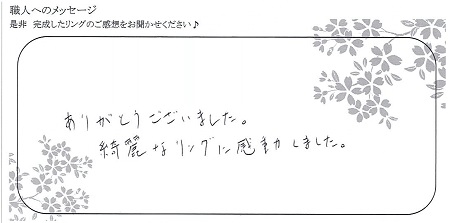 職人へのメッセージ
是非 完成したリングのご感想をお聞かせください♪
ありがとうございました。
綺麗なリングに感動しました。